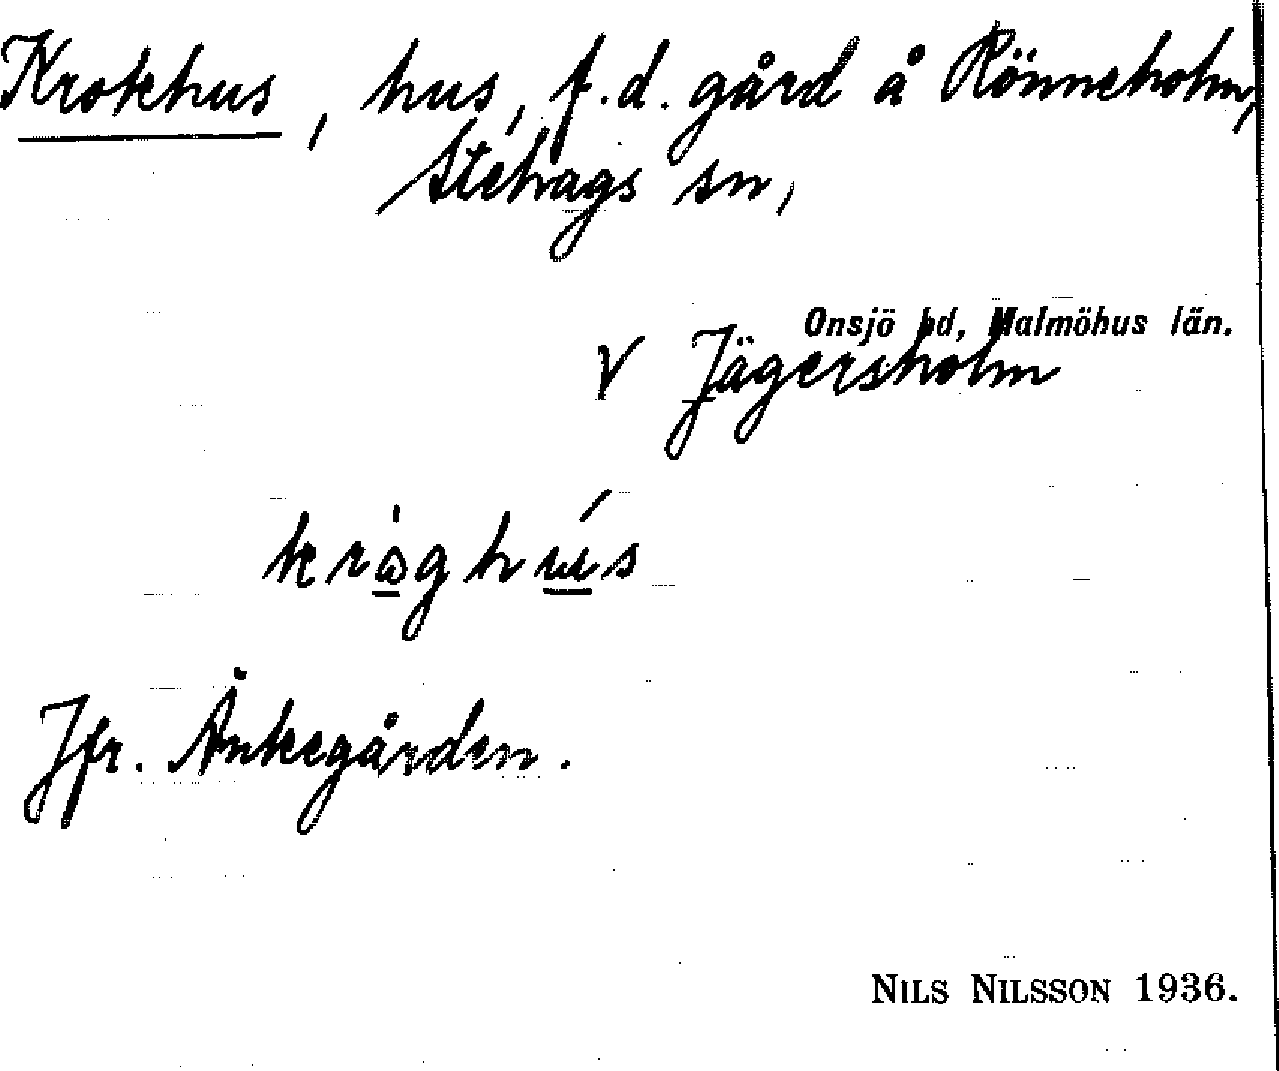 Krokhus, hus, f.d. gård å Rönneholm,
Stehags sn,
Onsjö hd, Malmöhus län.
V Jägersholm
Jfr. Änkegården.
NILS NILSSON 1936.